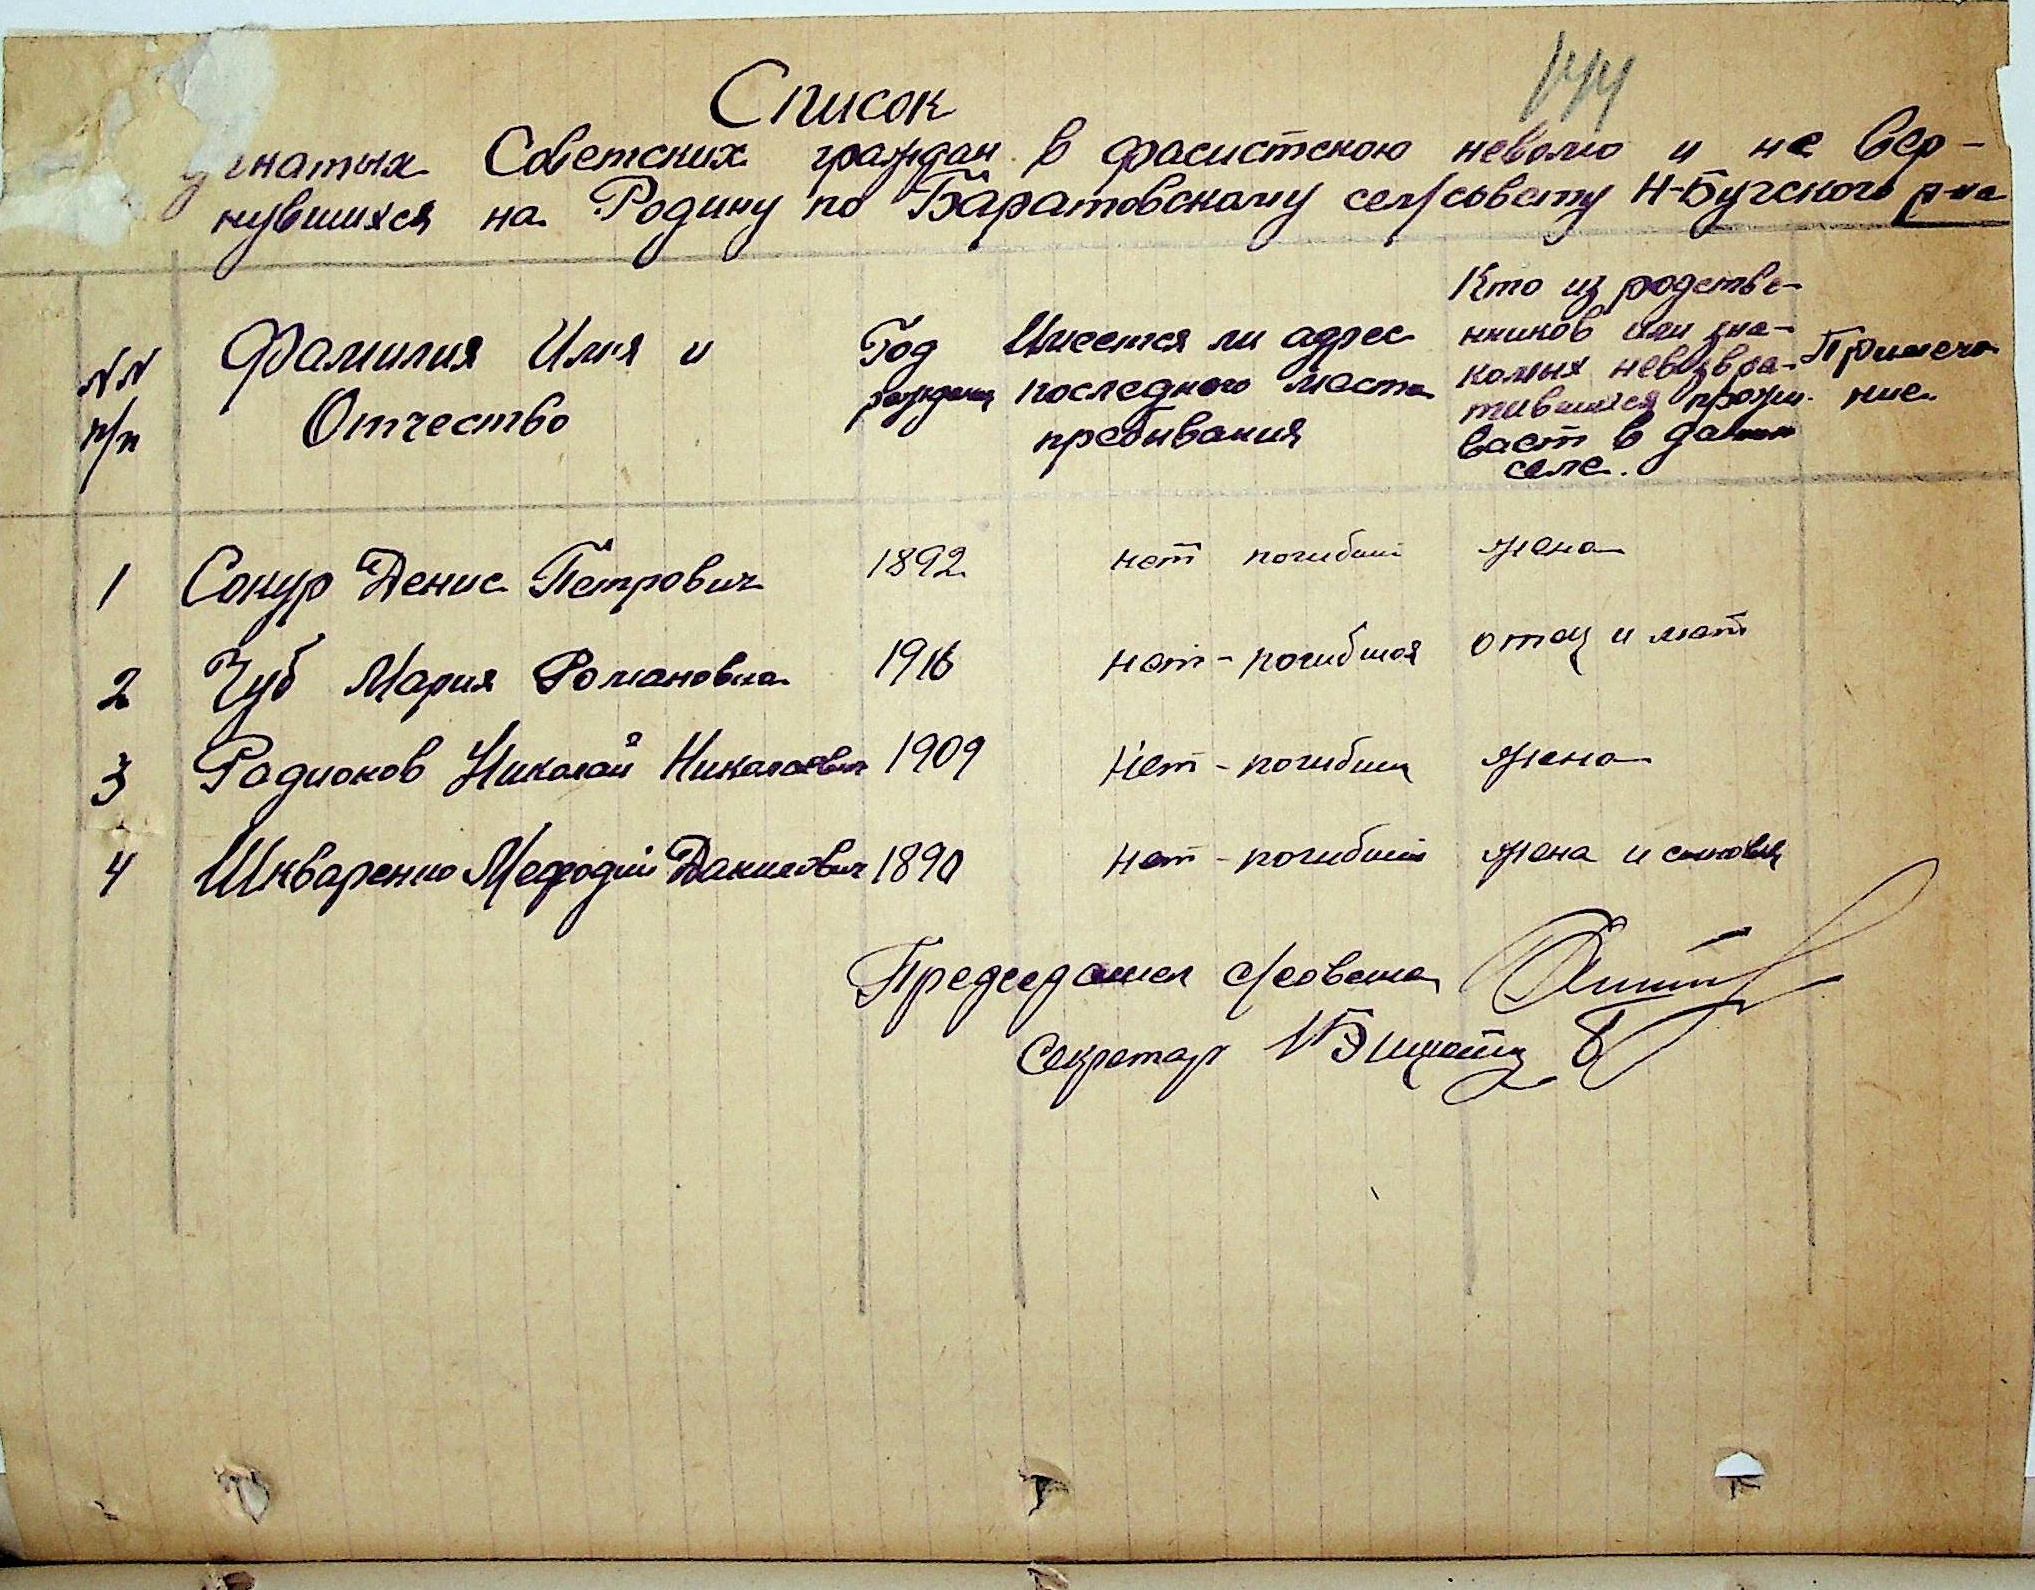 144
Список
угнатых Советских граждан в фасистскою неволю и не вер-
нувшихся на Родину по Баратовскому сел/совету Н-Бугского р-на
NN п/п
Фамилия Имя и Отчество
Год рождения
Имеется ли адрес последного места пребывания
Кто из родстве-
нников или зна-
комых невозвра-
тившихся прожи-
вает в даном
селе.
Примеча
ние
1 Сокур Денис Петрович 1892 нет погибший жена
2 Чуб Мария Романовна 1916 нет - погибшая отец и мать
3 Радионов Николай Николаевич 1909 Нет - погибший жена
4 Шкваренко Мефодий Данилович 1890 нет - погибший жена и сыновья
Председател с/совета
Секретарь